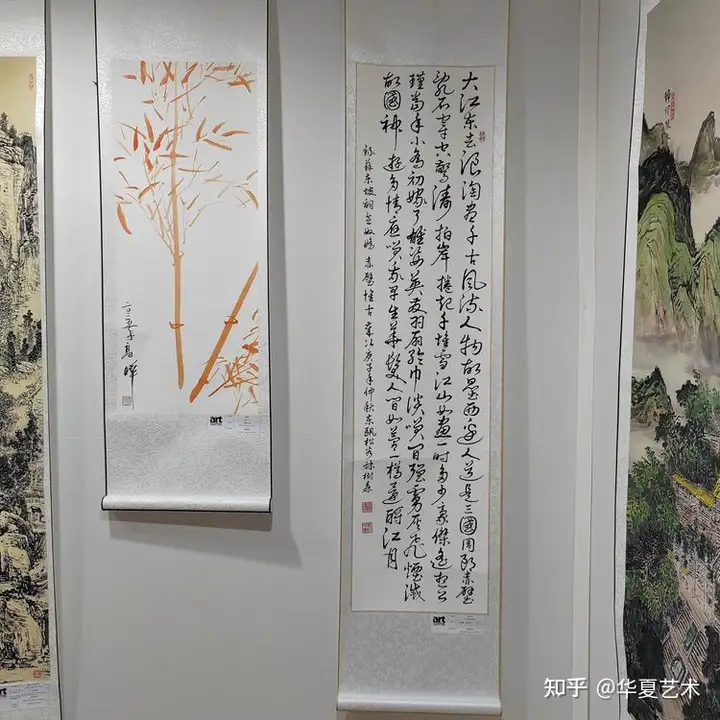 大江东去浪淘尽千古风流人物故垒西边人道是三國周郎赤壁
乱石穿空驚濤拍岸捲起千堆雪江山如画一时多少豪傑遥想公
瑾当年小乔初嫁了雄姿英发羽扇纶巾谈笑间强虏灰飞煙滅
故國神游多情应笑我早生華髮人间如梦一樽還酹江月
錄蘇东坡词念奴娇 赤壁懷古 岁次庚子年仲秋东瓯松
art
art
art
知乎 @华夏艺术